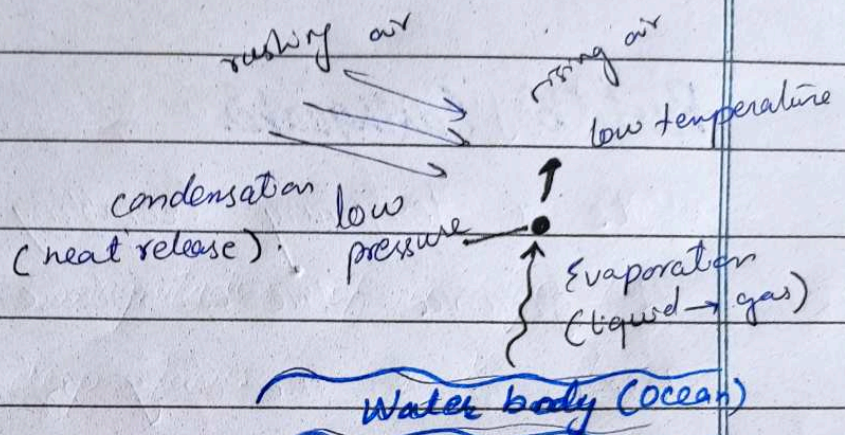 rushing air
rising air
low temperature
condensation
(heat release)
low
pressure
Evaporation
(liquid → gas)
Water body (Ocean)